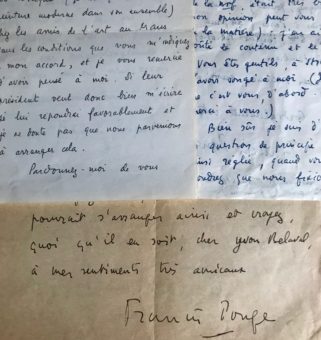 peinture moderne dans son ensemble)
les amis de l'art au
dans les conditions que vous m'indiquez
mon accord, et je vous remercie
d'avoir pensé à moi. Si leur
président veut donc bien m'écrire
je lui répondrai favorablement et
je ne doute pas que nous parvenions
à arranger cela.
Pardonnez-moi de vous
était très
on opinion peut vous
la matière) : j'ai
le contenu et le
êtes gentils à
avoir songé à moi
c'est vous, d'abord
merci à vous.)
Bien sûr je suis d'
question de principe
ainsi réglée, quand vous
que nous
pourrait s'arranger ainsi et croyez,
quoi qu'il en soit, cher Yvon Belaval,
à mes sentiments très amicaux
Francis Ponge